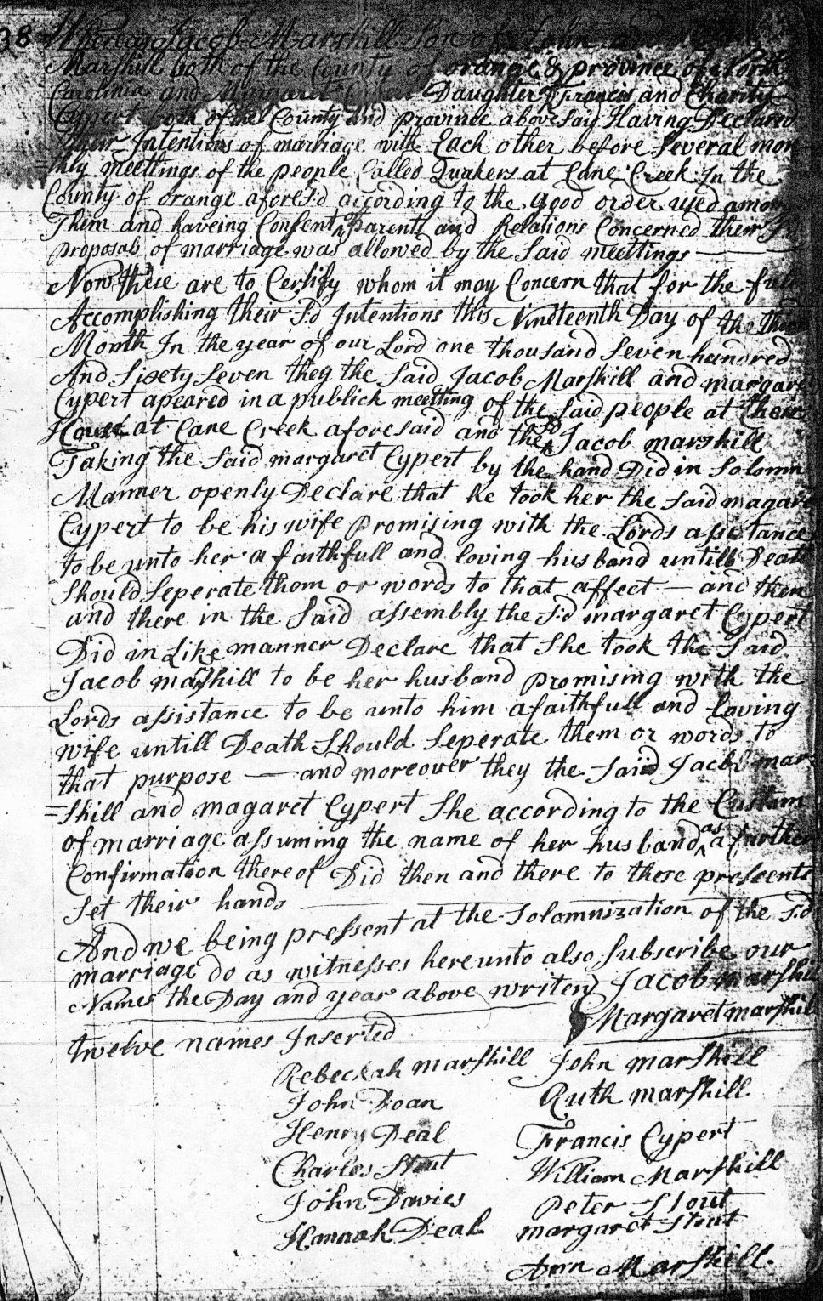 98 Whereas Jacob Marshill Son of John and
Marshill both of the County of orange & province of North
Carolina and Margaret Cypert Daughter of Francis and Charity
Cypert both of the County and province above Said Having Declared
Their Intentions of marriage with Each other before Several mon
thly meettings of the people Called Quakers at Cane Creek In the
County of orange afores:d according to the good order used amon
Them and haveing Consent of parents and Relations Concerned their
proposals of marriage was allowed by the Said meettings
Now these are to Certify whom it may Concern that for the full
Accomplishing their S:d Intentions this Nindteenth Day of the third
Month In the year of our Lord one thousand Seven hundred
And Sixety Seven they the Said Jacob Marshill and margare
Cypert apeared in a publick meetting of the Said people at their
House at Cane Creek aforesaid and the Sd Jacob marshill
Taking the Said margaret Cypert by the hand Did in Solomn
Manner openly Declare that he took her the Said magare
Cypert to be his wife promising with the Lords assistance
to be unto her a faithfull and loving husband untill Death
Should Seperate them or words to that affect — and then
and there in the Said assembly the S:d margaret Cypert
Did in Like manner Declare that She took the Said
Jacob marshill to be her husband promising with the
Lords assistance to be unto him a faithfull and loving
wife untill Death Should Seperate them or words to
that purpose — and moreover they the Said Jacob mar
=shill and magaret Cypert She according to the Custom
of marriage assuming the name of her husband as a further
Confirmation thereof Did then and there to these pressents
Set their hands
And we being pressent at the Solomnization of the S:d
marriage do as witnesses hereunto also Subscribe our
Names the Day and year above writen } Jacob marshill
Margaret marshill
twelve names Inserted
Rebeckah marshill John marshill
John Doan Ruth marshill
Henry Deal Francis Cypert
Charles Stout William Marshill
John Davies Peter Stout
Hannah Deal margaret Stout
Ann Marshill.